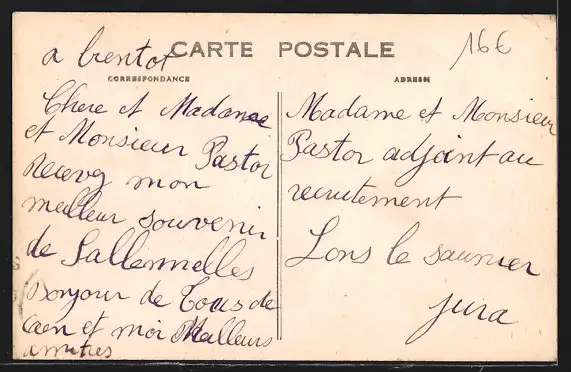 a bientot
CARTE POSTALE
16€
CORRESPONDANCE
ADRESSE
Chere et Madame
et Monsieur Pastor
Recevez mon
meilleur souvenir
de Sallennelles
Bonjour de Tous de
Caen et moi Meilleurs
amities
Madame et Monsieur
Pastor adjoint au
recrutement
Lons le saunier
Jura